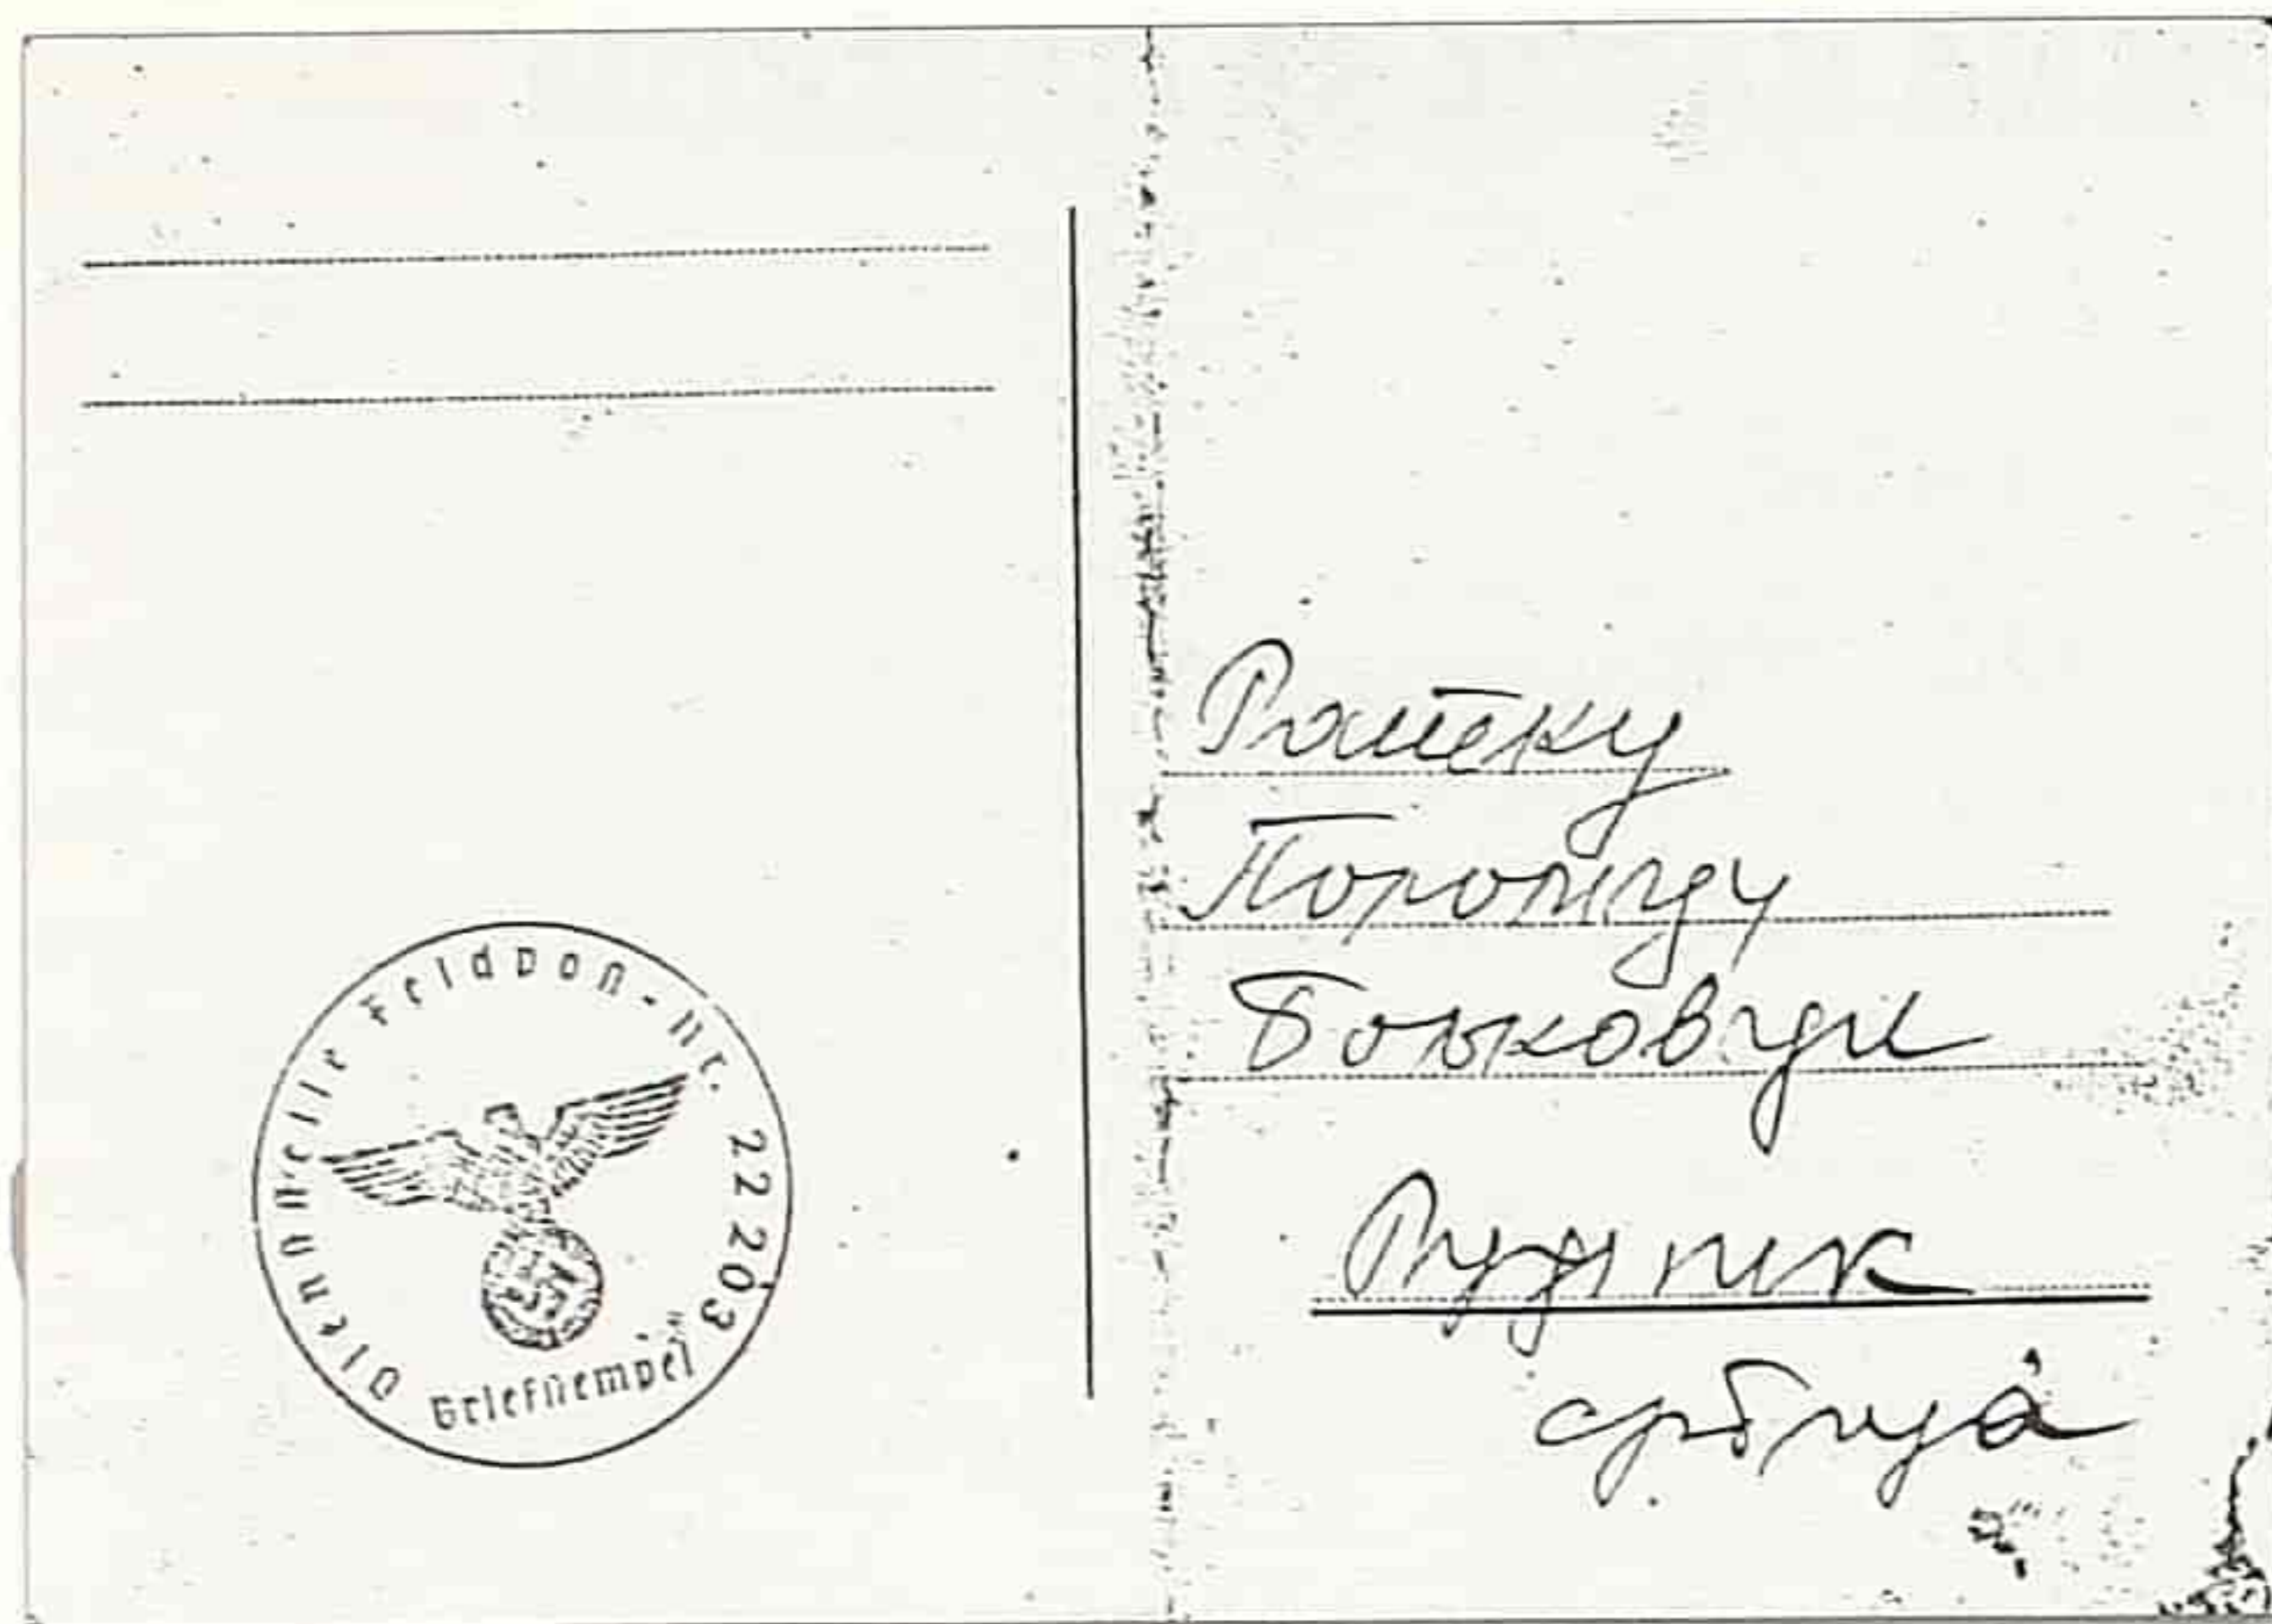 Dienststelle Feldpost-Nr. 22203
Briefstempel
Ратку
Бољковци
Рудник
србија